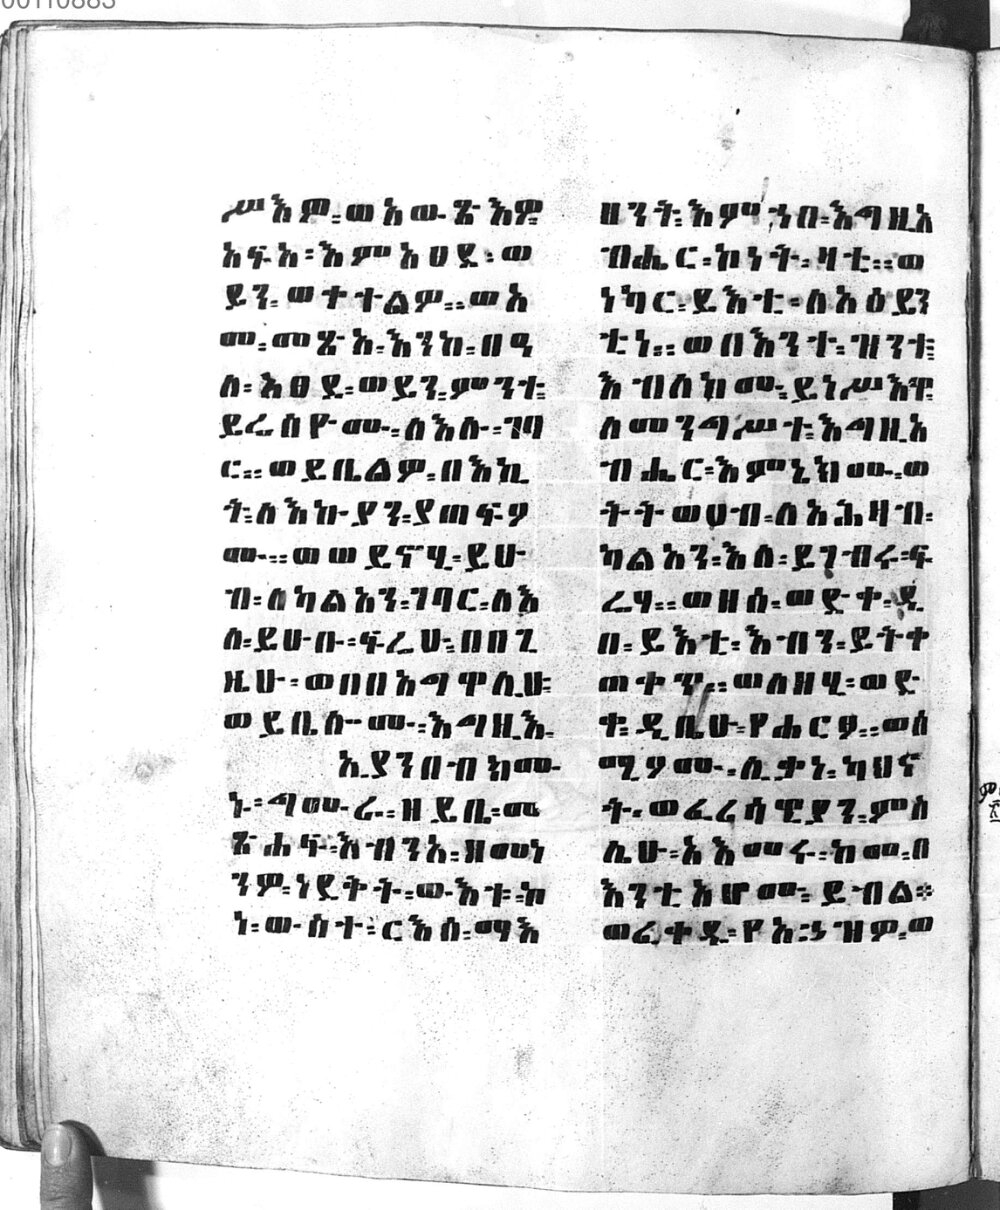 ሥእዎ፡ወአውፂእዎ
አፍአ፡እምአፀደ፡ወ
ይን፡ወቀተልዎ፡፡ወእ
መ፡መፂአ፡እንከ፡በዓ
ለ፡አፀደ፡ወይን፡ምንተ፡
ይሬስዮሙ፡ለእሉ፡ገባ
ር፡፡ወይቤልዎ፡በእኪ
ት፡ለእኩያን፡ያጠፍዖ
ሙ፡፡ወወይኖሂ፡ይሁ
ብ፡ለካልአን፡ገባር፡ለእ
ለ፡ይሁቡ፡ፍሬሁ፡በበጊ
ዜሁ፡
ወይቤሎሙ፡እግዚእ፡
ኢያንበብክሙ
ኑ፡ግሙራ፡ዘይቤ፡መ
ጽሐፍ፡እብን፡እ፡ዘመነ
ንዎ፡ነደቅት፡ውእቱ፡ኮ
ነ፡ውስተ፡ርእሰ፡ማእ
ዘንት፡እምኀበ፡እግዚአ
ብሔር፡ኮነት፡ዛቲ፡፡ወ
ነካር፡ይእቲ፡ለአዕይን
ቲነ፡፡ወበእንተ፡ዝንቱ፡
እብለክሙ፡ይነሥእዋ፡
ለመንግሥተ፡እግዚአ
ብሔር፡እምኔክሙ፡ወ
ትትወሀብ፡ለአሕዛብ፡
ካልአን፡እለ፡ይገብሩ፡ፍ
ሬሃ፡፡ወዘሰ፡ወድቀ፡ዲ
በ፡ይእቲ፡እብን፡ይትቀ
ጠቀጥ፡፡ወለዘሂ፡ወድ
ቀት፡ዲቤሁ፡የሐርፆ፡፡ወሰ
ሚዖሙ፡ሊቃነ፡ካህና
ት፡ወፈሪሳዊያን፡ምሳ
ሊሁ፡አእመሩ፡ከመ፡በ
እንቲአሆሙ፡ይብል፨
ወፈቀዱ፡የአኃዝዎ፡ወ